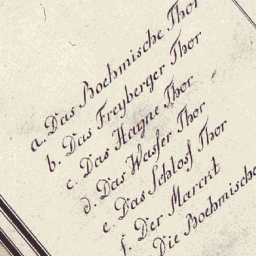 a. Das Boehmische Thor
b. Das Freyberger Thor
c. Das Hayne Thor
d. Das Wasser Thor
e. Das Schloss Thor
f. Der Marckt
Die Boehmische